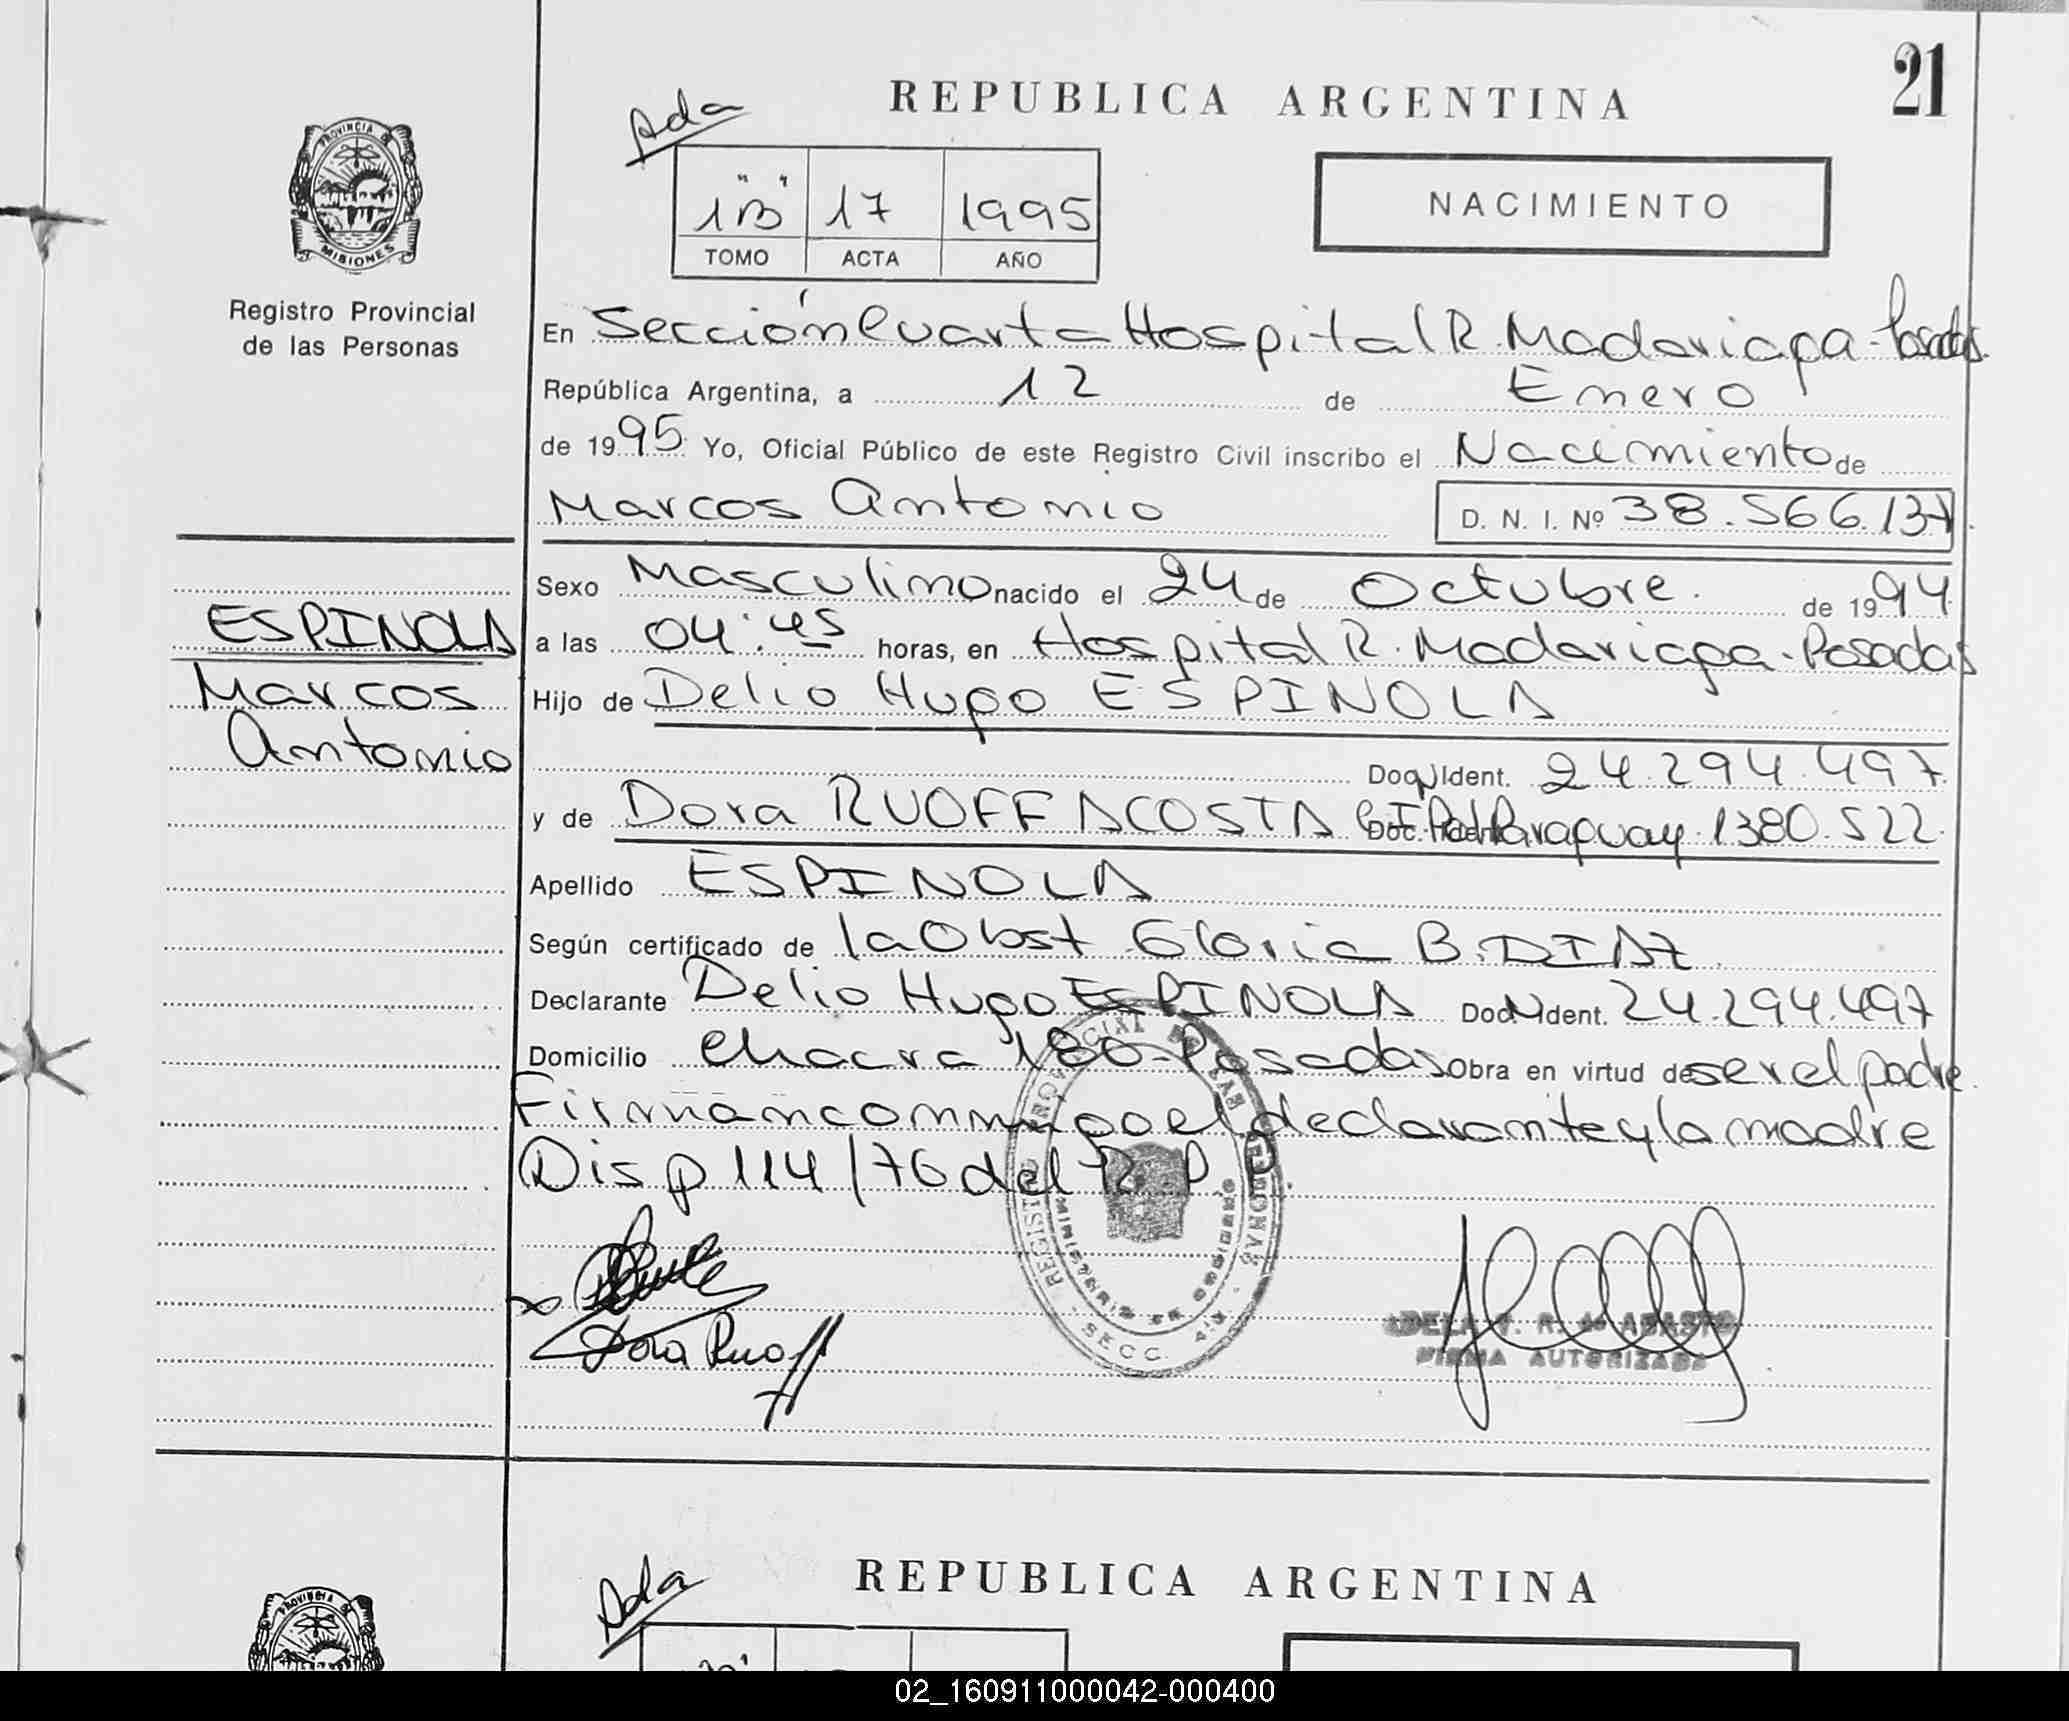 21
REPUBLICA ARGENTINA
Ada
PROVINCIA DE
MISIONES
Registro Provincial
de las Personas
"1B" 17 1995
TOMO ACTA AÑO
NACIMIENTO
En Sección Cuarta Hospital R. Madariaga - Posadas.
República Argentina, a 12 de Enero
de 1995 Yo, Oficial Público de este Registro Civil inscribo el Nacimiento de
Marcos Antonio D. N. I. Nº 38.566.137.
ESPINOLA
Marcos
Antonio
Sexo Masculino nacido el 24 de Octubre. de 1994
a las 04:45 horas, en Hospital R. Madariaga - Posadas
Hijo de Delio Hugo ESPINOLA
Doc. Ident. 24.294.497.
y de Dora RUOFF ACOSTA Paraguay 1380.522.
Apellido ESPINOLA
Según certificado de la Obst Gloria B. DIAZ
Declarante Delio Hugo ESPINOLA Doc. Ident. 24.294.497
Domicilio Chacra 180 - Posadas Obra en virtud de ser el padre.
Firman conmigo el declarante y la madre
Disp 114/76 del R P P
REGISTRO PROVINCIAL DE LAS PERSONAS
MINISTERIO DE GOBIERNO
SECC. 4ta.
Dora Ruoff
FIRMA AUTORIZADA
Ada
REPUBLICA ARGENTINA
PROVINCIA DE
02_160911000042-000400